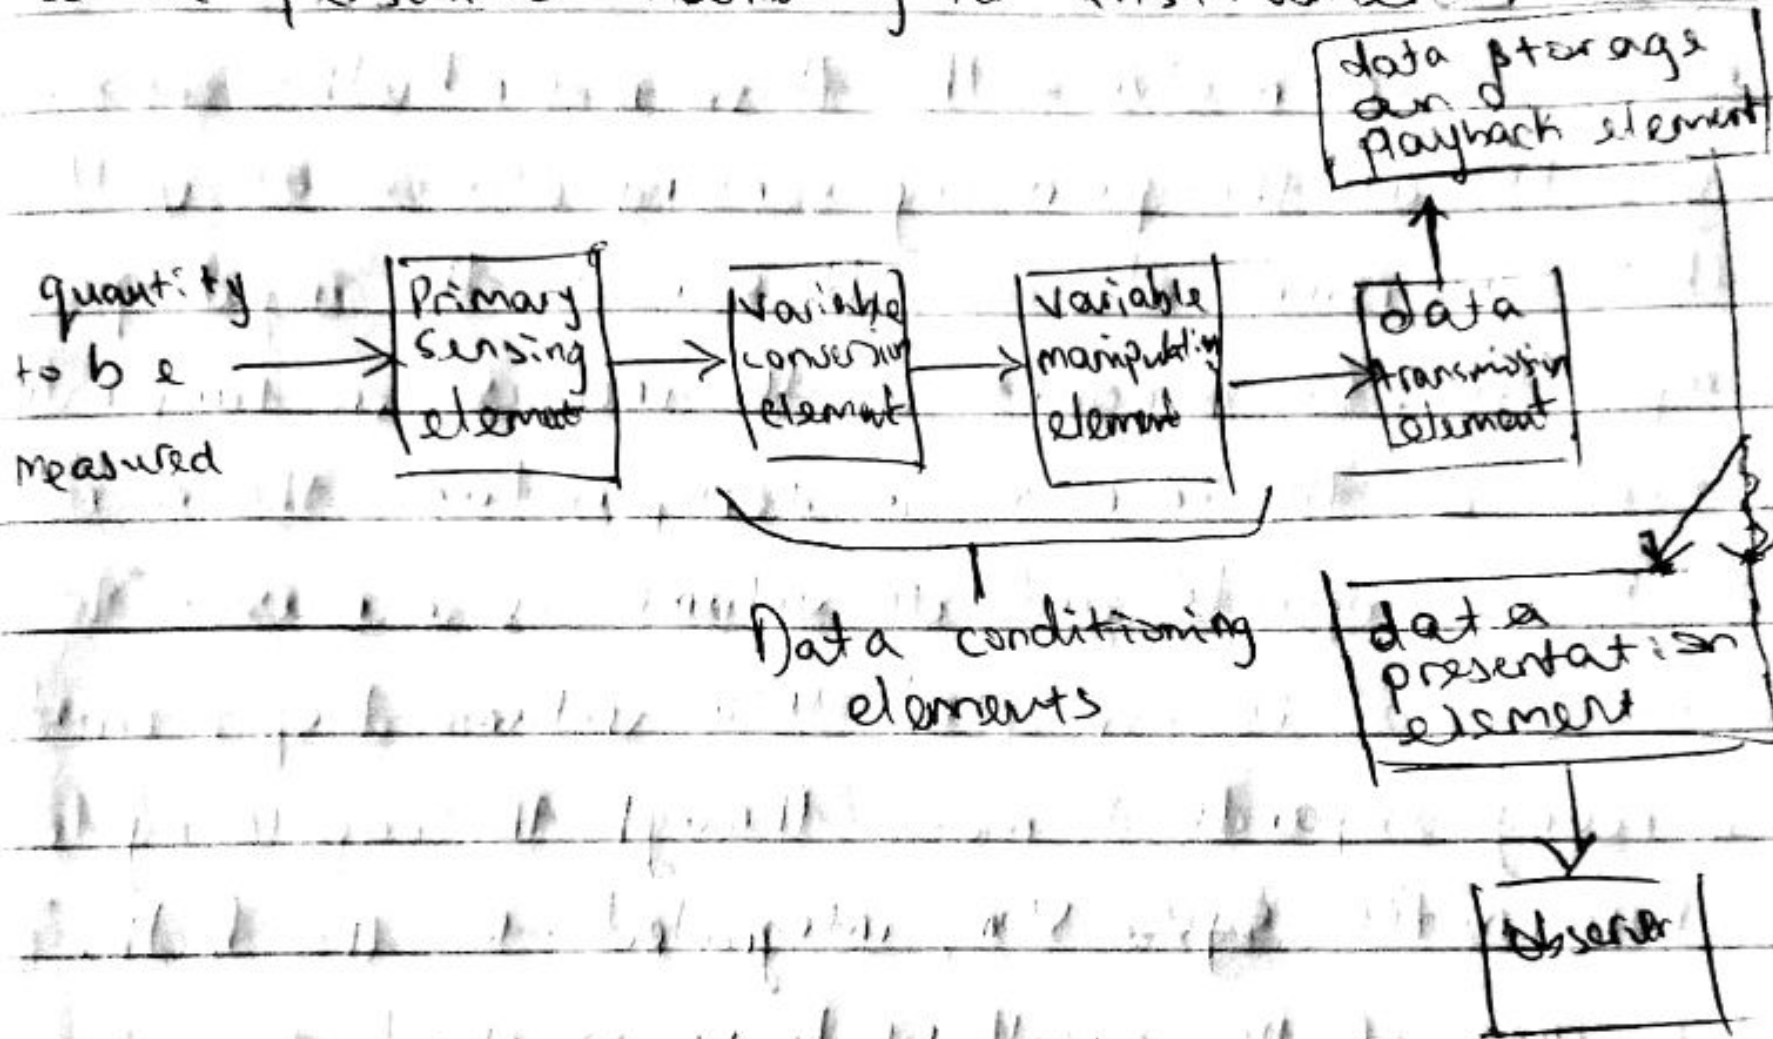 data storage
and
playback element
quantity
to be
measured
Primary
sensing
element
variable
conversion
element
variable
manipulation
element
data
transmission
element
Data conditioning
elements
data
presentation
element
observer